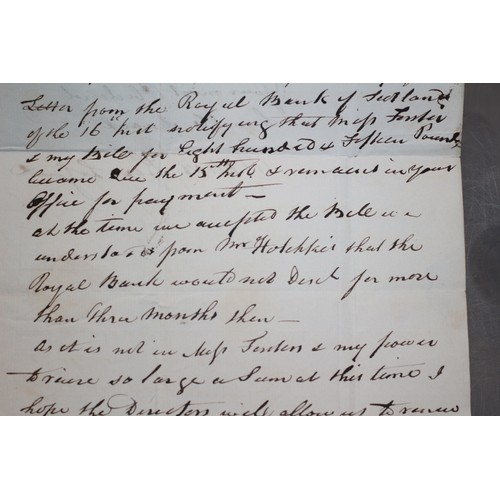 Letter from the Royal Bank of Scotland
of the 16 Inst notifying that Miss Forster
& my Bill for Eight hundred & Fifteen Pounds
became due the 15th Inst & remains in your
Office for payment —
At the time we accepted the Bill we
understood from Mr Hotchkis that the
Royal Bank would not Disct for more
than three months then —
As it is not in Miss Forsters & my power
to raise so large a Sum at this time I
hope the Directors will allow us to renew